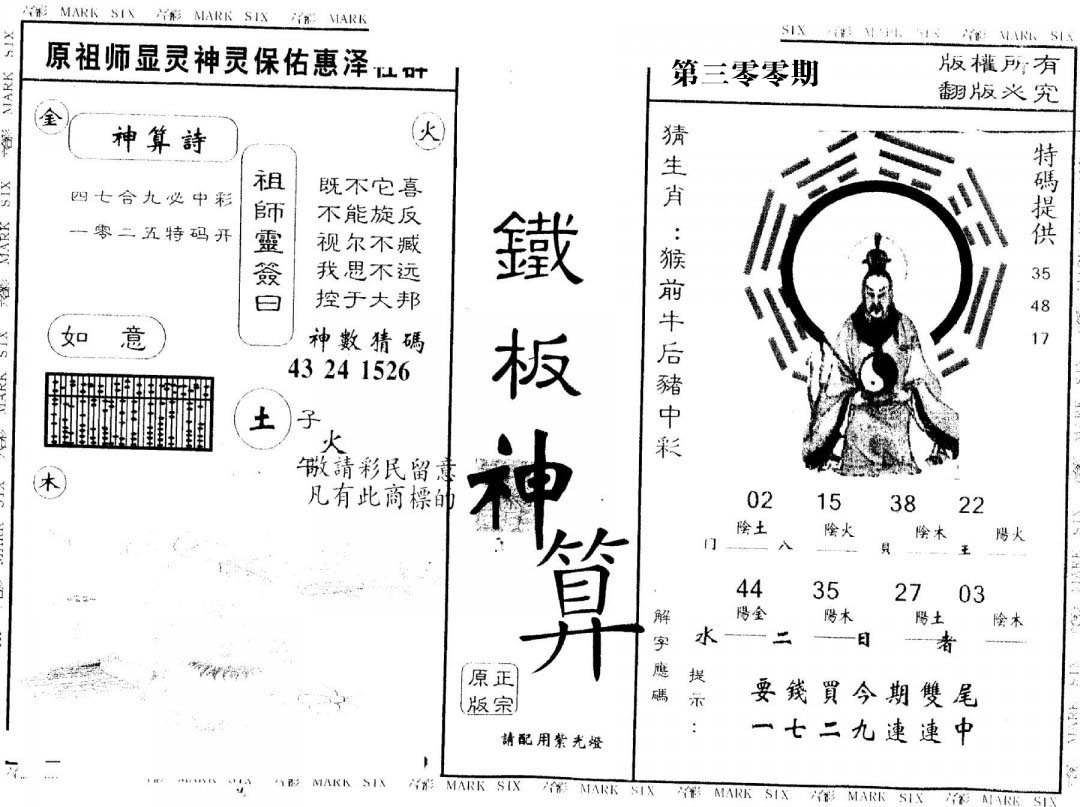 MARK SIX MARK SIX MARK
原祖师显灵神灵保佑惠泽社群
金
神算詩
火
四七合九必中彩
一零二五特码开
祖師靈簽曰
既不它喜
不能旋反
视尔不臧
我思不远
控于大邦
神數猜碼
43 24 1526
如意
土
子
火
午
敬請彩民留意
凡有此商標的
木
鐵板神算
正宗
原版
請配用紫光燈
第三零零期
版權所有
翻版必究
猜生肖：猴前牛后豬中彩
特碼提供
35
48
17
02 15 38 22
陰土 陰火 陰木 陽火
门 八 貝 王
44 35 27 03
陽金 陽木 陽土 陰木
水 二 日 者
解字應碼
提示：
要錢買今期雙尾
一七二九連連中
MARK SIX MARK SIX MARK SIX MARK SIX MARK SIX MARK SIX